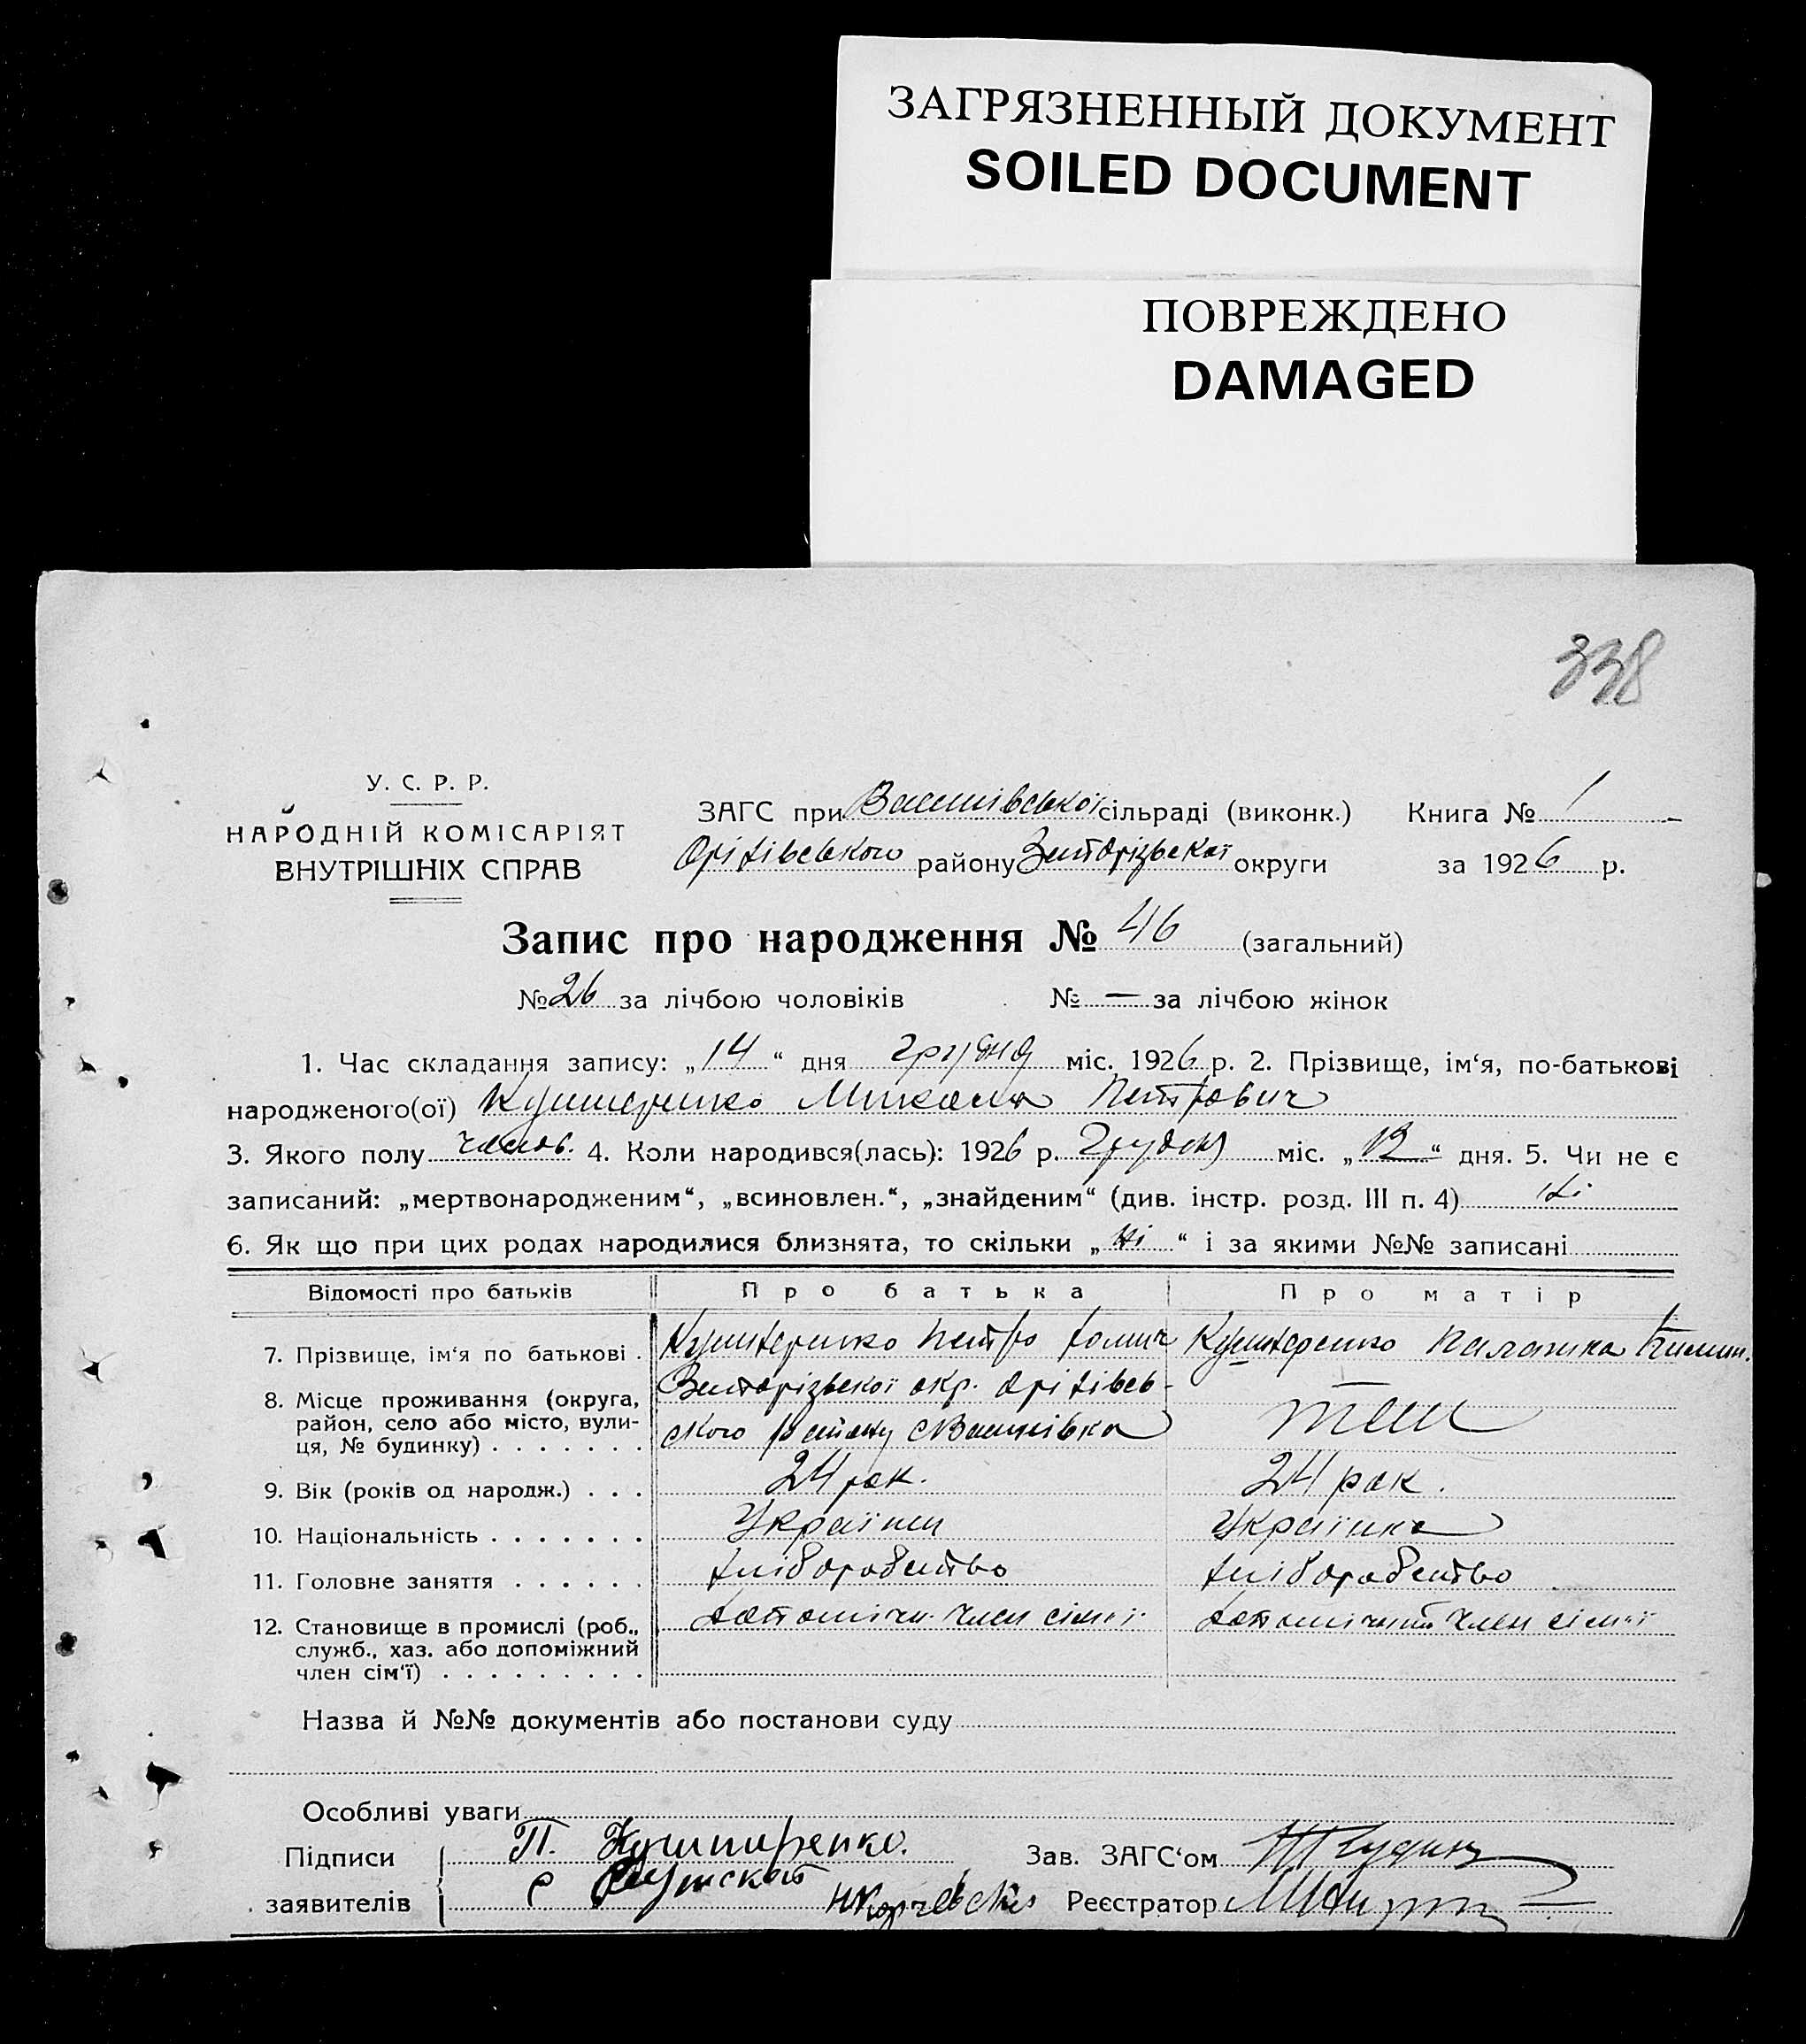 ЗАГРЯЗНЕННЫЙ ДОКУМЕНТ
SOILED DOCUMENT
ПОВРЕЖДЕНО
DAMAGED
338
У. С. Р. Р.
НАРОДНІЙ КОМІСАРІЯТ
ВНУТРІШНІХ СПРАВ
ЗАГС при сільраді (виконк.) Книга № 1
Оріхівського району Запорізької округи за 1926 р.
Запис про народження № 46 (загальний)
№ 26 за лічбою чоловіків № — за лічбою жінок
1. Час складання запису: „14“ дня грудня міс. 1926 р. 2. Прізвище, ім‘я, по-батькові
народженого(ої) Кушнеренко Микола Петрович
3. Якого полу чолов. 4. Коли народився(лась): 1926 р. грудня міс. „13“ дня. 5. Чи не є
записаний: „мертвонародженим“, „всиновлен.“, „знайденим“ (див. інстр. розд. III п. 4) Ні
6. Як що при цих родах народилися близнята, то скільки „Ні“ і за якими №№ записані
Відомості про батьків Про батька Про матір
7. Прізвище, ім‘я по батькові . Кушнеренко Петро Кушнеренко
8. Місце проживання (округа, район, село або місто, вулиця, № будинку) . . . . . . . Запорізької окр. Оріхівсь-
ського району — там
9. Вік (років од народж.) . . . 24 рок. 24 рок.
10. Національність . . . . . . . Українец Українка
11. Головне заняття . . . . . . хліборобство хліборобство
12. Становище в промислі (роб., служб., хаз. або допоміжний член сім‘ї) . . . . . . . . . допоміжн. член сім'ї допоміжний член сім'ї
Назва й №№ документів або постанови суду
Особливі уваги
Підписи П. Кушниренко. Зав. ЗАГС‘ом
заявителів Реєстратор